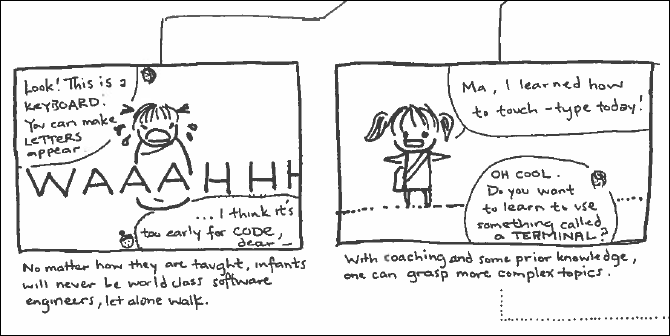 Look! This is a
KEYBOARD!
You can make
LETTERS
appear
WAAAHHH
... I think it's
too early for CODE,
dear —
No matter how they are taught, infants
will never be world class software
engineers, let alone walk.
Ma, I learned how
to touch-type today!
OH COOL.
Do you want
to learn to use
something called
a TERMINAL?
With coaching and some prior knowledge,
one can grasp more complex topics.